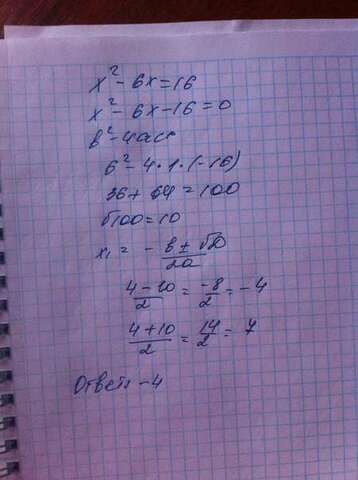 x² - 6x = 16
x² - 6x - 16 = 0
b² - 4ac
6² - 4 · 1 · (-16)
36 + 64 = 100
√100 = 10
x₁ = - b ± √D / 2a
4 - 10 / 2 = -8 / 2 = -4
4 + 10 / 2 = 14 / 2 = 7
Ответ: -4